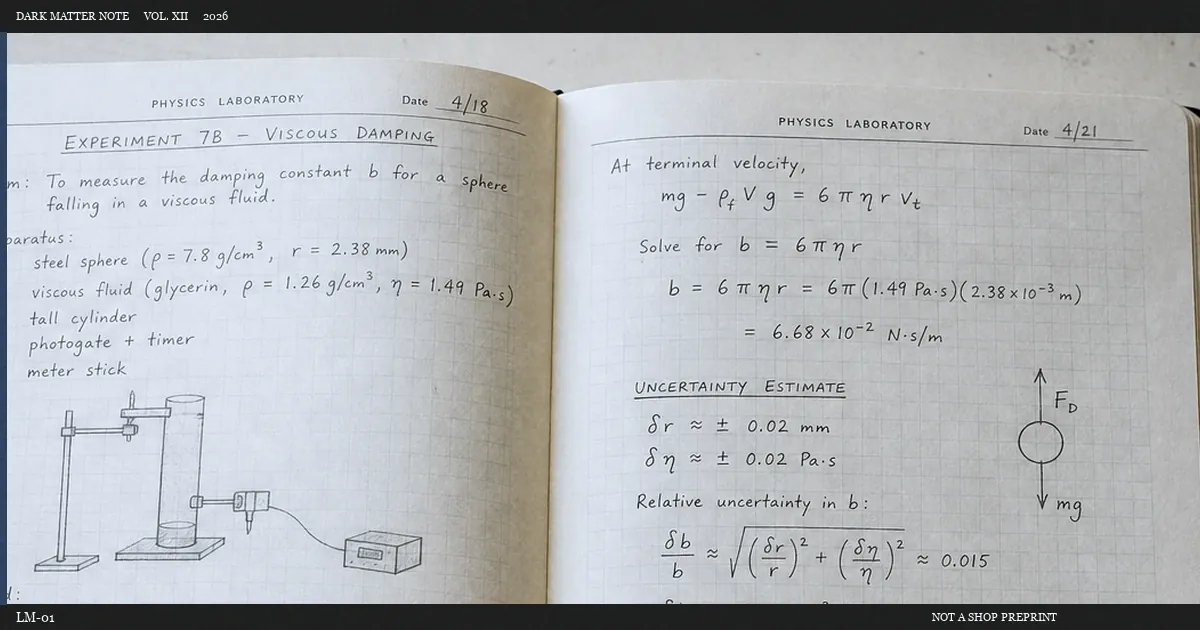 DARK MATTER NOTE VOL. XII 2026
PHYSICS LABORATORY Date 4/18
EXPERIMENT 7B – VISCOUS DAMPING
m: To measure the damping constant b for a sphere
falling in a viscous fluid.
paratus:
steel sphere (ρ = 7.8 g/cm³, r = 2.38 mm)
viscous fluid (glycerin, ρ = 1.26 g/cm³, η = 1.49 Pa·s)
tall cylinder
photogate + timer
meter stick
d:
PHYSICS LABORATORY Date 4/21
At terminal velocity,
mg − ρ_f V g = 6 π η r v_t
Solve for b = 6 π η r
b = 6 π η r = 6π (1.49 Pa·s)(2.38 × 10⁻³ m)
= 6.68 × 10⁻² N·s/m
UNCERTAINTY ESTIMATE
δr ≈ ± 0.02 mm
δη ≈ ± 0.02 Pa·s
Relative uncertainty in b:
δb/b ≈ √((δr/r)² + (δη/η)²) ≈ 0.015
F_D
mg
LM-01 NOT A SHOP PREPRINT